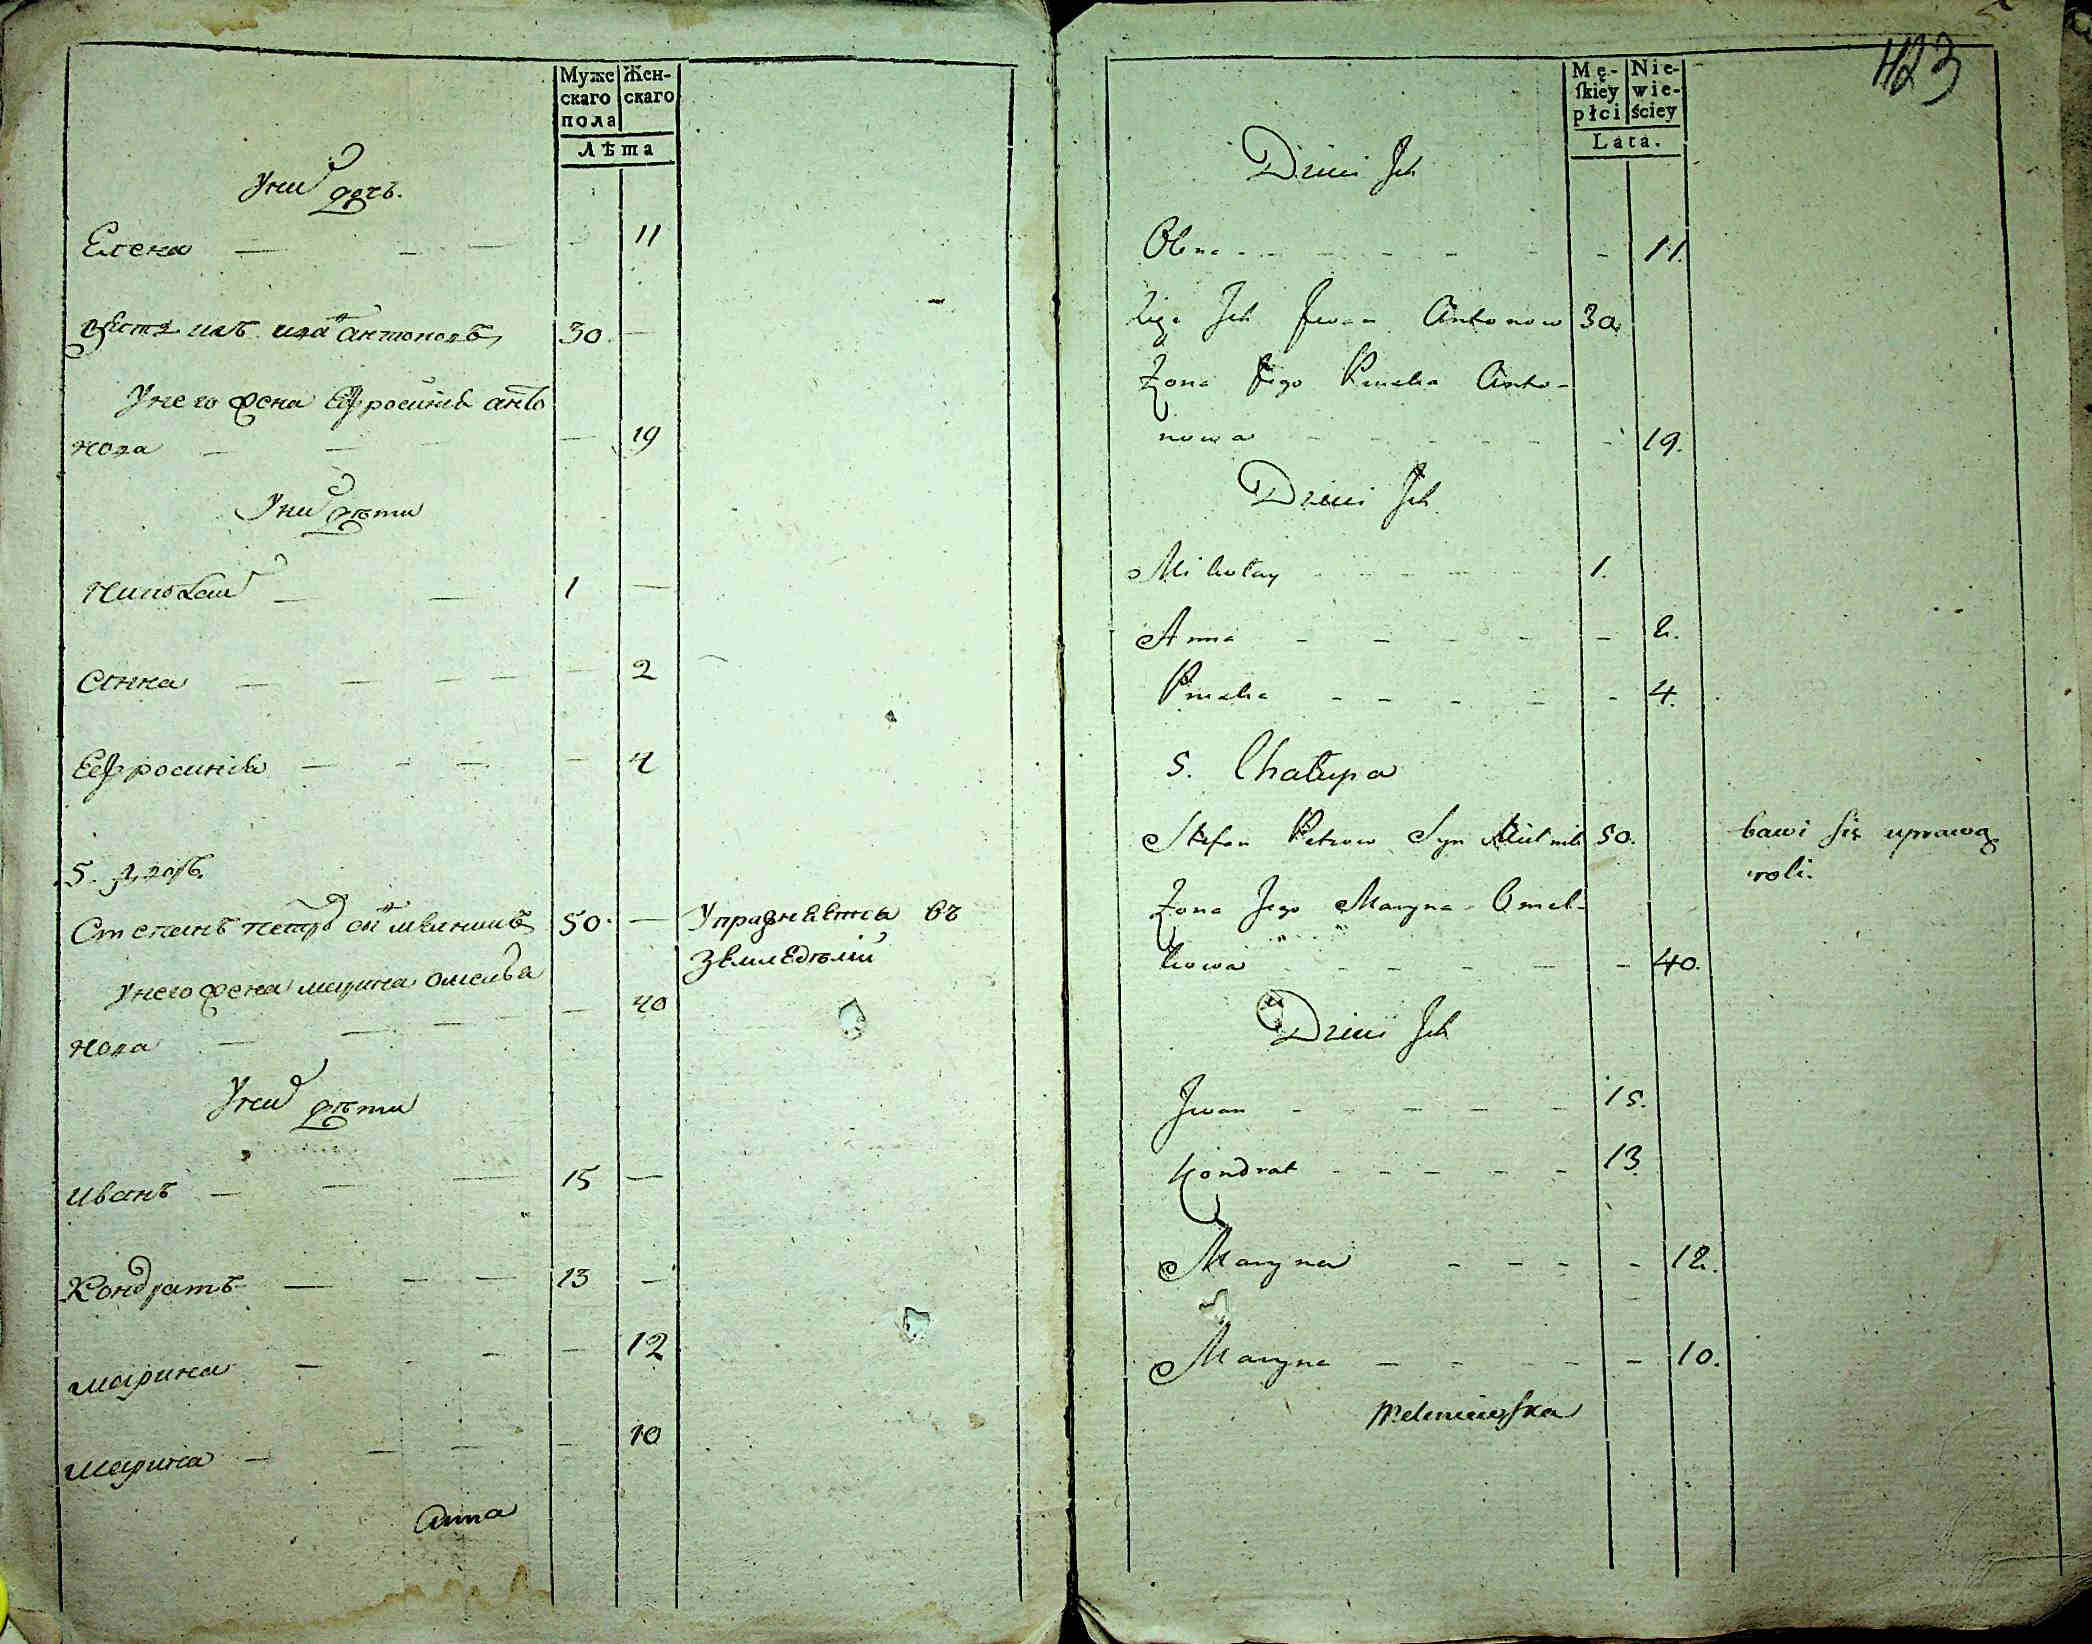 Муже
скаго
пола
Жен-
скаго
Лѣта
Уних дочъ.
Елена — — — — 11
зять ихъ ива Антоновъ 30. —
Унего жена Ефросинія анто
нова — — — 19
Уних дѣти
Николаи — — 1 —
Анна — — — — — 2
Ефросинія — — — — 4
5. дворъ.
Степанъ петро сы мелникъ 50. — Упражняется въ
земледѣліи
Унего жена марина омелья
нова — — — — 40
Уних дѣти
Иванъ — — — 15 —
Кондратъ — — — 13 —
марина — — — — 12
марина — — — — 10
Анна
423
Mę-
ſkiey
płci
Nie-
wie-
ściey
Lata.
Dzieci Jch
Olena - - - - - - 11.
Zięć Jch Jwan Antonow 30.
Żona Jego Pruzka Anto-
nowa - - - - - - 19.
Dzieci Jch
Mikołay - - - - - 1.
Anna - - - - - 2.
Pruzka - - - - - 4.
5. Chałupa
Stefan Petrow Syn Mielnik 50. bawi się uprawą
roli.
Żona Jego Maryna Omel-
kowa - - - - - - 40.
Dzieci Jch
Jwan - - - - - 15.
Kondrat - - - - - 13
Maryna - - - - 12.
Maryna - - - - 10.